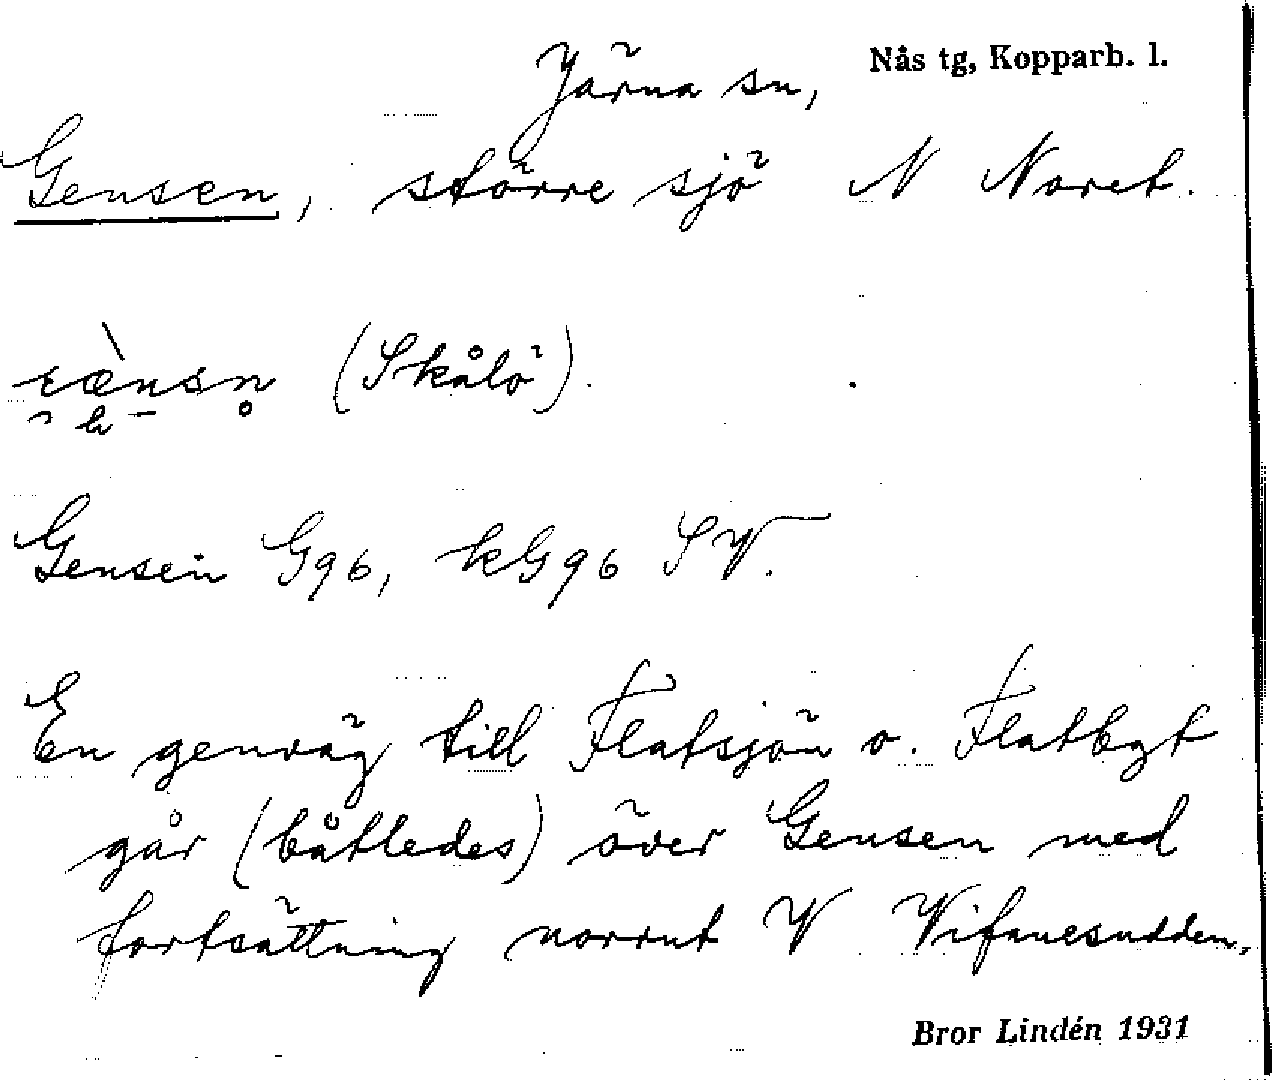 Järna sn, Nås tg, Kopparb. l.
Gensen, större sjö N Noret.
(Skålö).
Gensen G96, kG96 SV.
En genväg till Flatsjön o. Flatbyt
går (båtledes) över Gensen med
fortsättning norrut V Vifanesudden.
Bror Lindén 1931